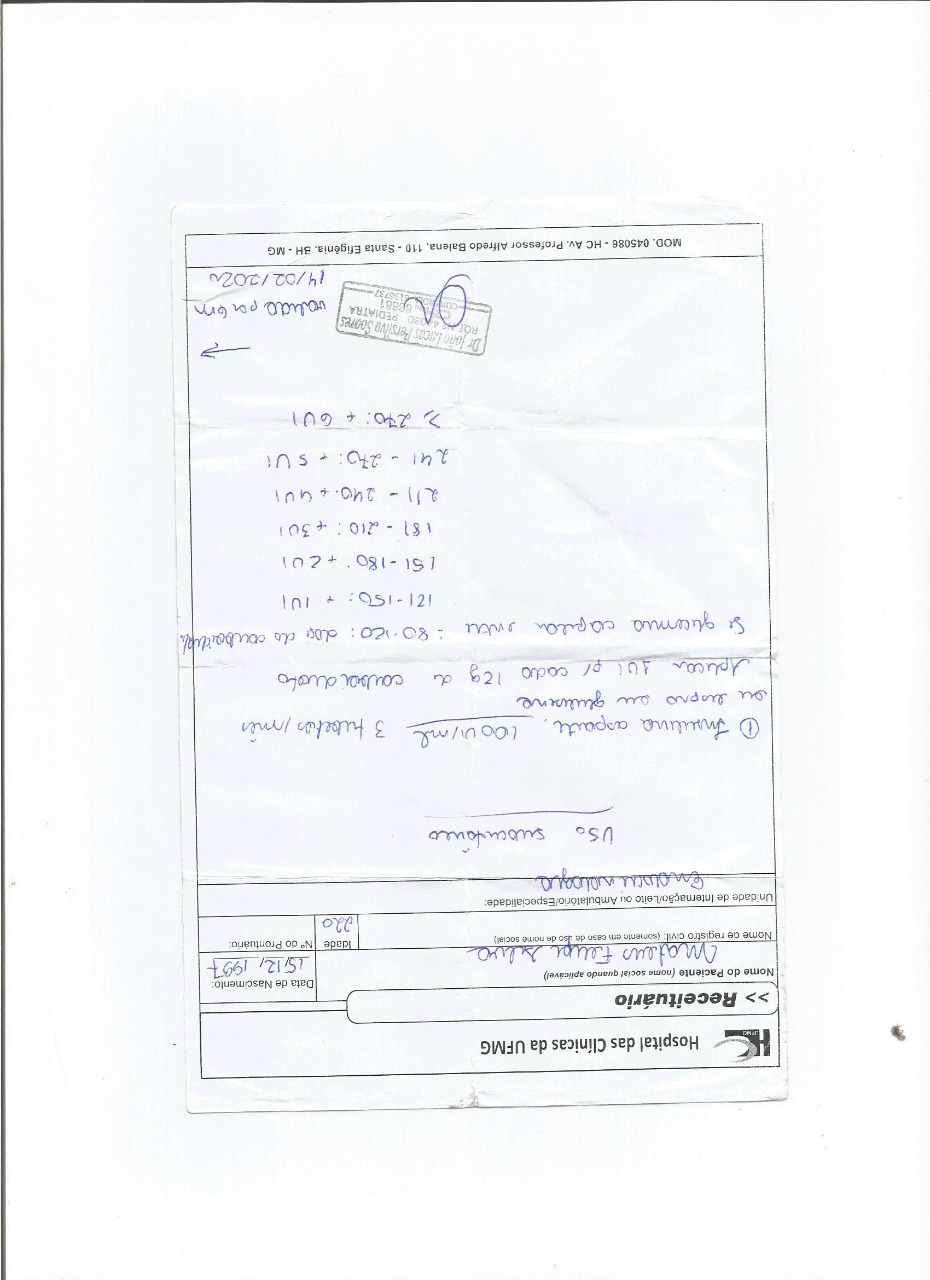 HC
UFMG
Hospital das Clínicas da UFMG
>> Receituário
Nome do Paciente (nome social quando aplicável)
Mateus Felipe Silva
Data de Nascimento:
15/12/1997
Nome de registro civil: (somente em caso de uso de nome social)
Idade
22a
Nº do Prontuário:
Unidade de Internação/Leito ou Ambulatório/Especialidade:
Endocrinologia
Uso subcutâneo
① Insulina asparte 100 UI/ml 3 tubetes/mês
ou lispro ou glulisina
Aplicar 1UI p/ cada 12g de carboidrato
Se glicemia capilar entre : 80-120: dose do carboidrato
121-150: + 1UI
151-180: + 2UI
181 - 210: + 3UI
211 - 240: + 4UI
241 - 270: + 5UI
≥ 270: + 6UI
Dr João Lucas Persilva Soares
PEDIATRA
14/02/2020
MOD. 045086 - HC Av. Professor Alfredo Balena, 110 - Santa Efigênia. BH - MG